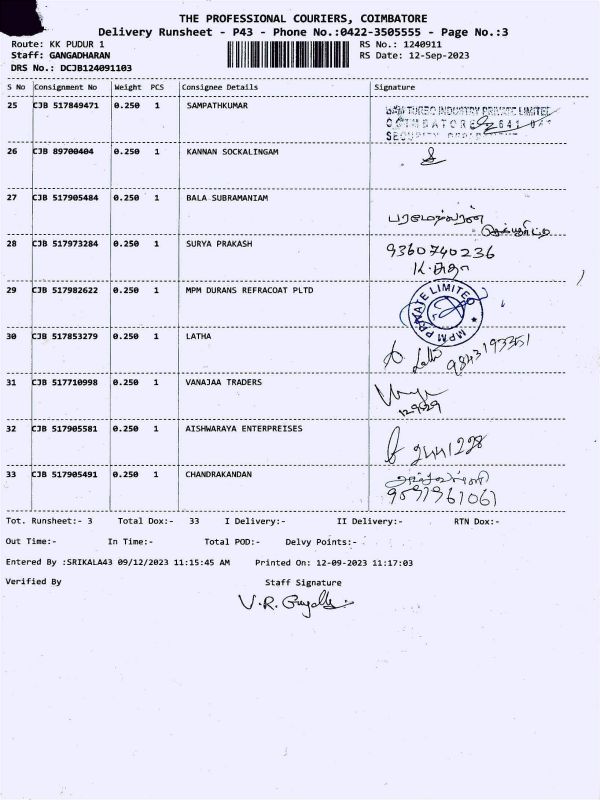 THE PROFESSIONAL COURIERS, COIMBATORE
Delivery Runsheet - P43 - Phone No.:0422-3505555 - Page No.:3
Route: KK PUDUR 1 RS No.: 1240911
Staff: GANGADHARAN RS Date: 12-Sep-2023
DRS No.: DCJB124091103
S No Consignment No Weight PCS Consignee Details Signature
25 CJB 517849471 0.250 1 SAMPATHKUMAR
INDUSTRY PRIVATE LIMITED
COIMBATORE 641
SECURITY
26 CJB 89700404 0.250 1 KANNAN SOCKALINGAM
27 CJB 517905484 0.250 1 BALA SUBRAMANIAM
பரமேஸ்வரன்
28 CJB 517973284 0.250 1 SURYA PRAKASH 9360740236
K.சுதா
29 CJB 517982622 0.250 1 MPM DURANS REFRACOAT PLTD
MPM PRIVATE LIMITED
30 CJB 517853279 0.250 1 LATHA
Latha 9843193351
31 CJB 517710998 0.250 1 VANAJAA TRADERS
32 CJB 517905581 0.250 1 AISHWARAYA ENTERPREISES
2441228
33 CJB 517905491 0.250 1 CHANDRAKANDAN
Tot. Runsheet:- 3 Total Dox:- 33 I Delivery:- II Delivery:- RTN Dox:-
Out Time:- In Time:- Total POD:- Delvy Points:-
Entered By :SRIKALA43 09/12/2023 11:15:45 AM Printed On: 12-09-2023 11:17:03
Verified By Staff Signature
V.R.